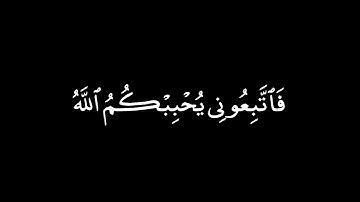 فَٱتَّبِعُونِى يُحْبِبْكُمُ ٱللَّهُ